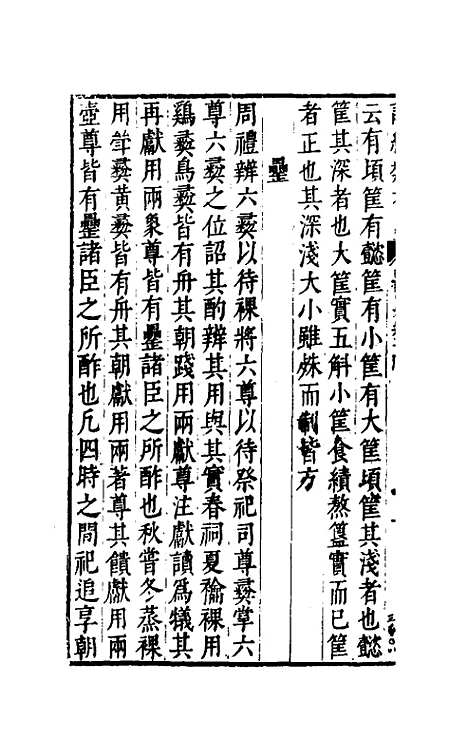 云有頃筐有懿筐有小筐有大筐頃筐其淺者也懿
筐其深者也大筐實五斛小筐食績熬簋實而已筐
者正也其深淺大小雖殊而制皆方
罍
周禮辨六彝以待祼將六尊以待祭祀司尊彝掌六
尊六彝之位詔其酌辨其用與其實春祠夏禴祼用
鷄彝鳥彝皆有舟其朝踐用兩獻尊注獻讀為犧其
再獻用兩象尊皆有罍諸臣之所酢也秋嘗冬蒸祼
用斝彝黃彝皆有舟其朝獻用兩著尊其饋獻用兩
壺尊皆有罍諸臣之所酢也凡四時之間祀追享朝